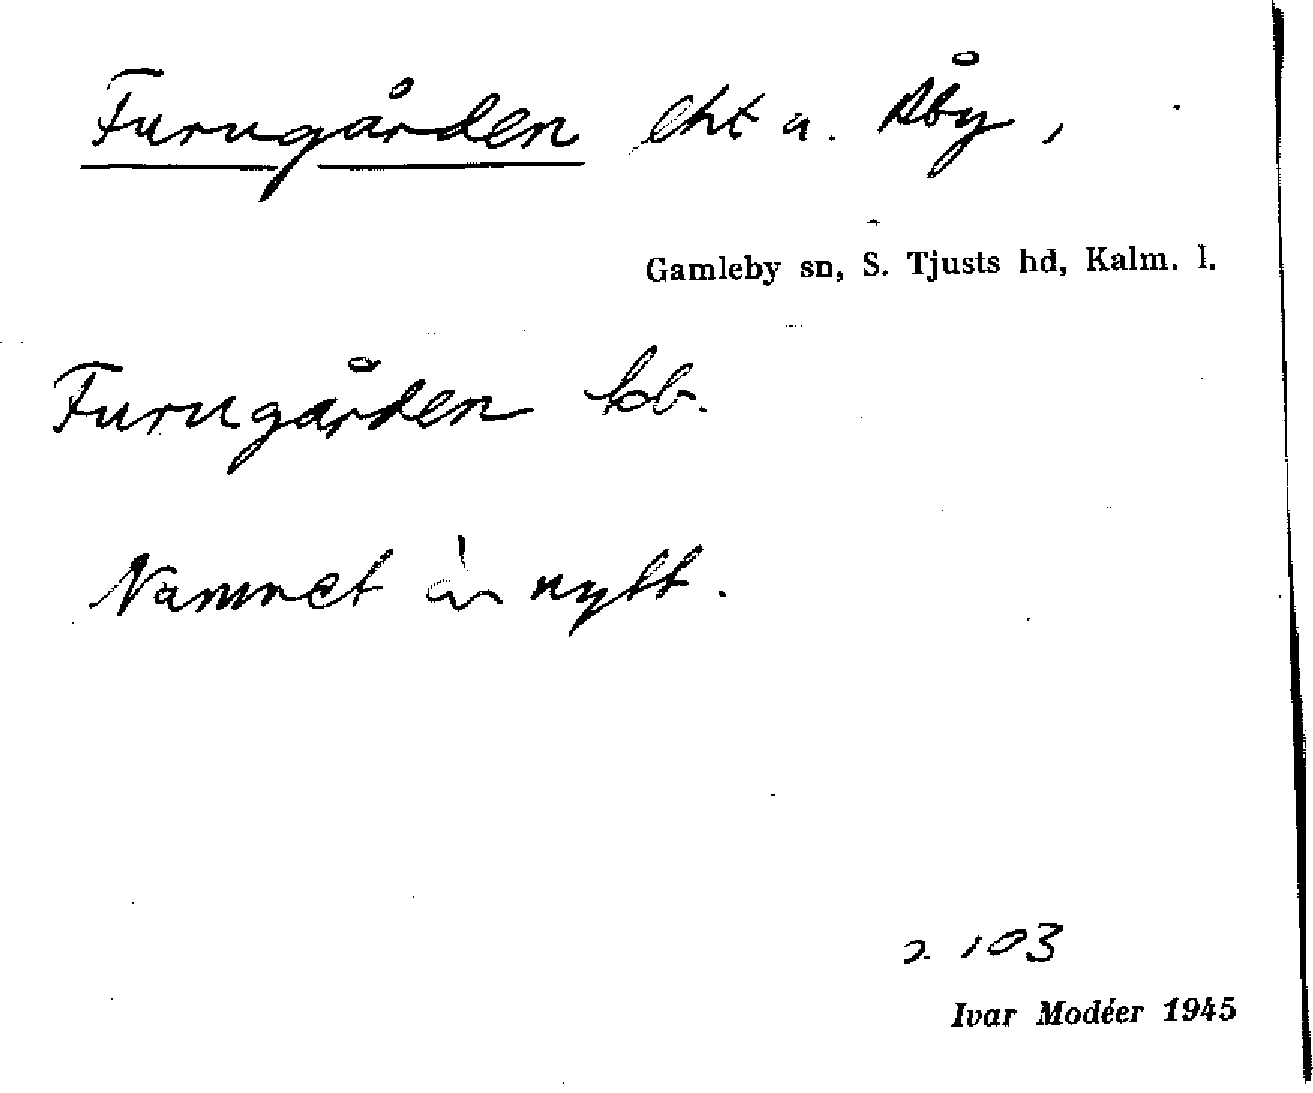 Furugården lht a. Åby,
Gamleby sn, S. Tjusts hd, Kalm. l.
Furugården kb.
Namnet är nytt.
s. 103
Ivar Modéer 1945